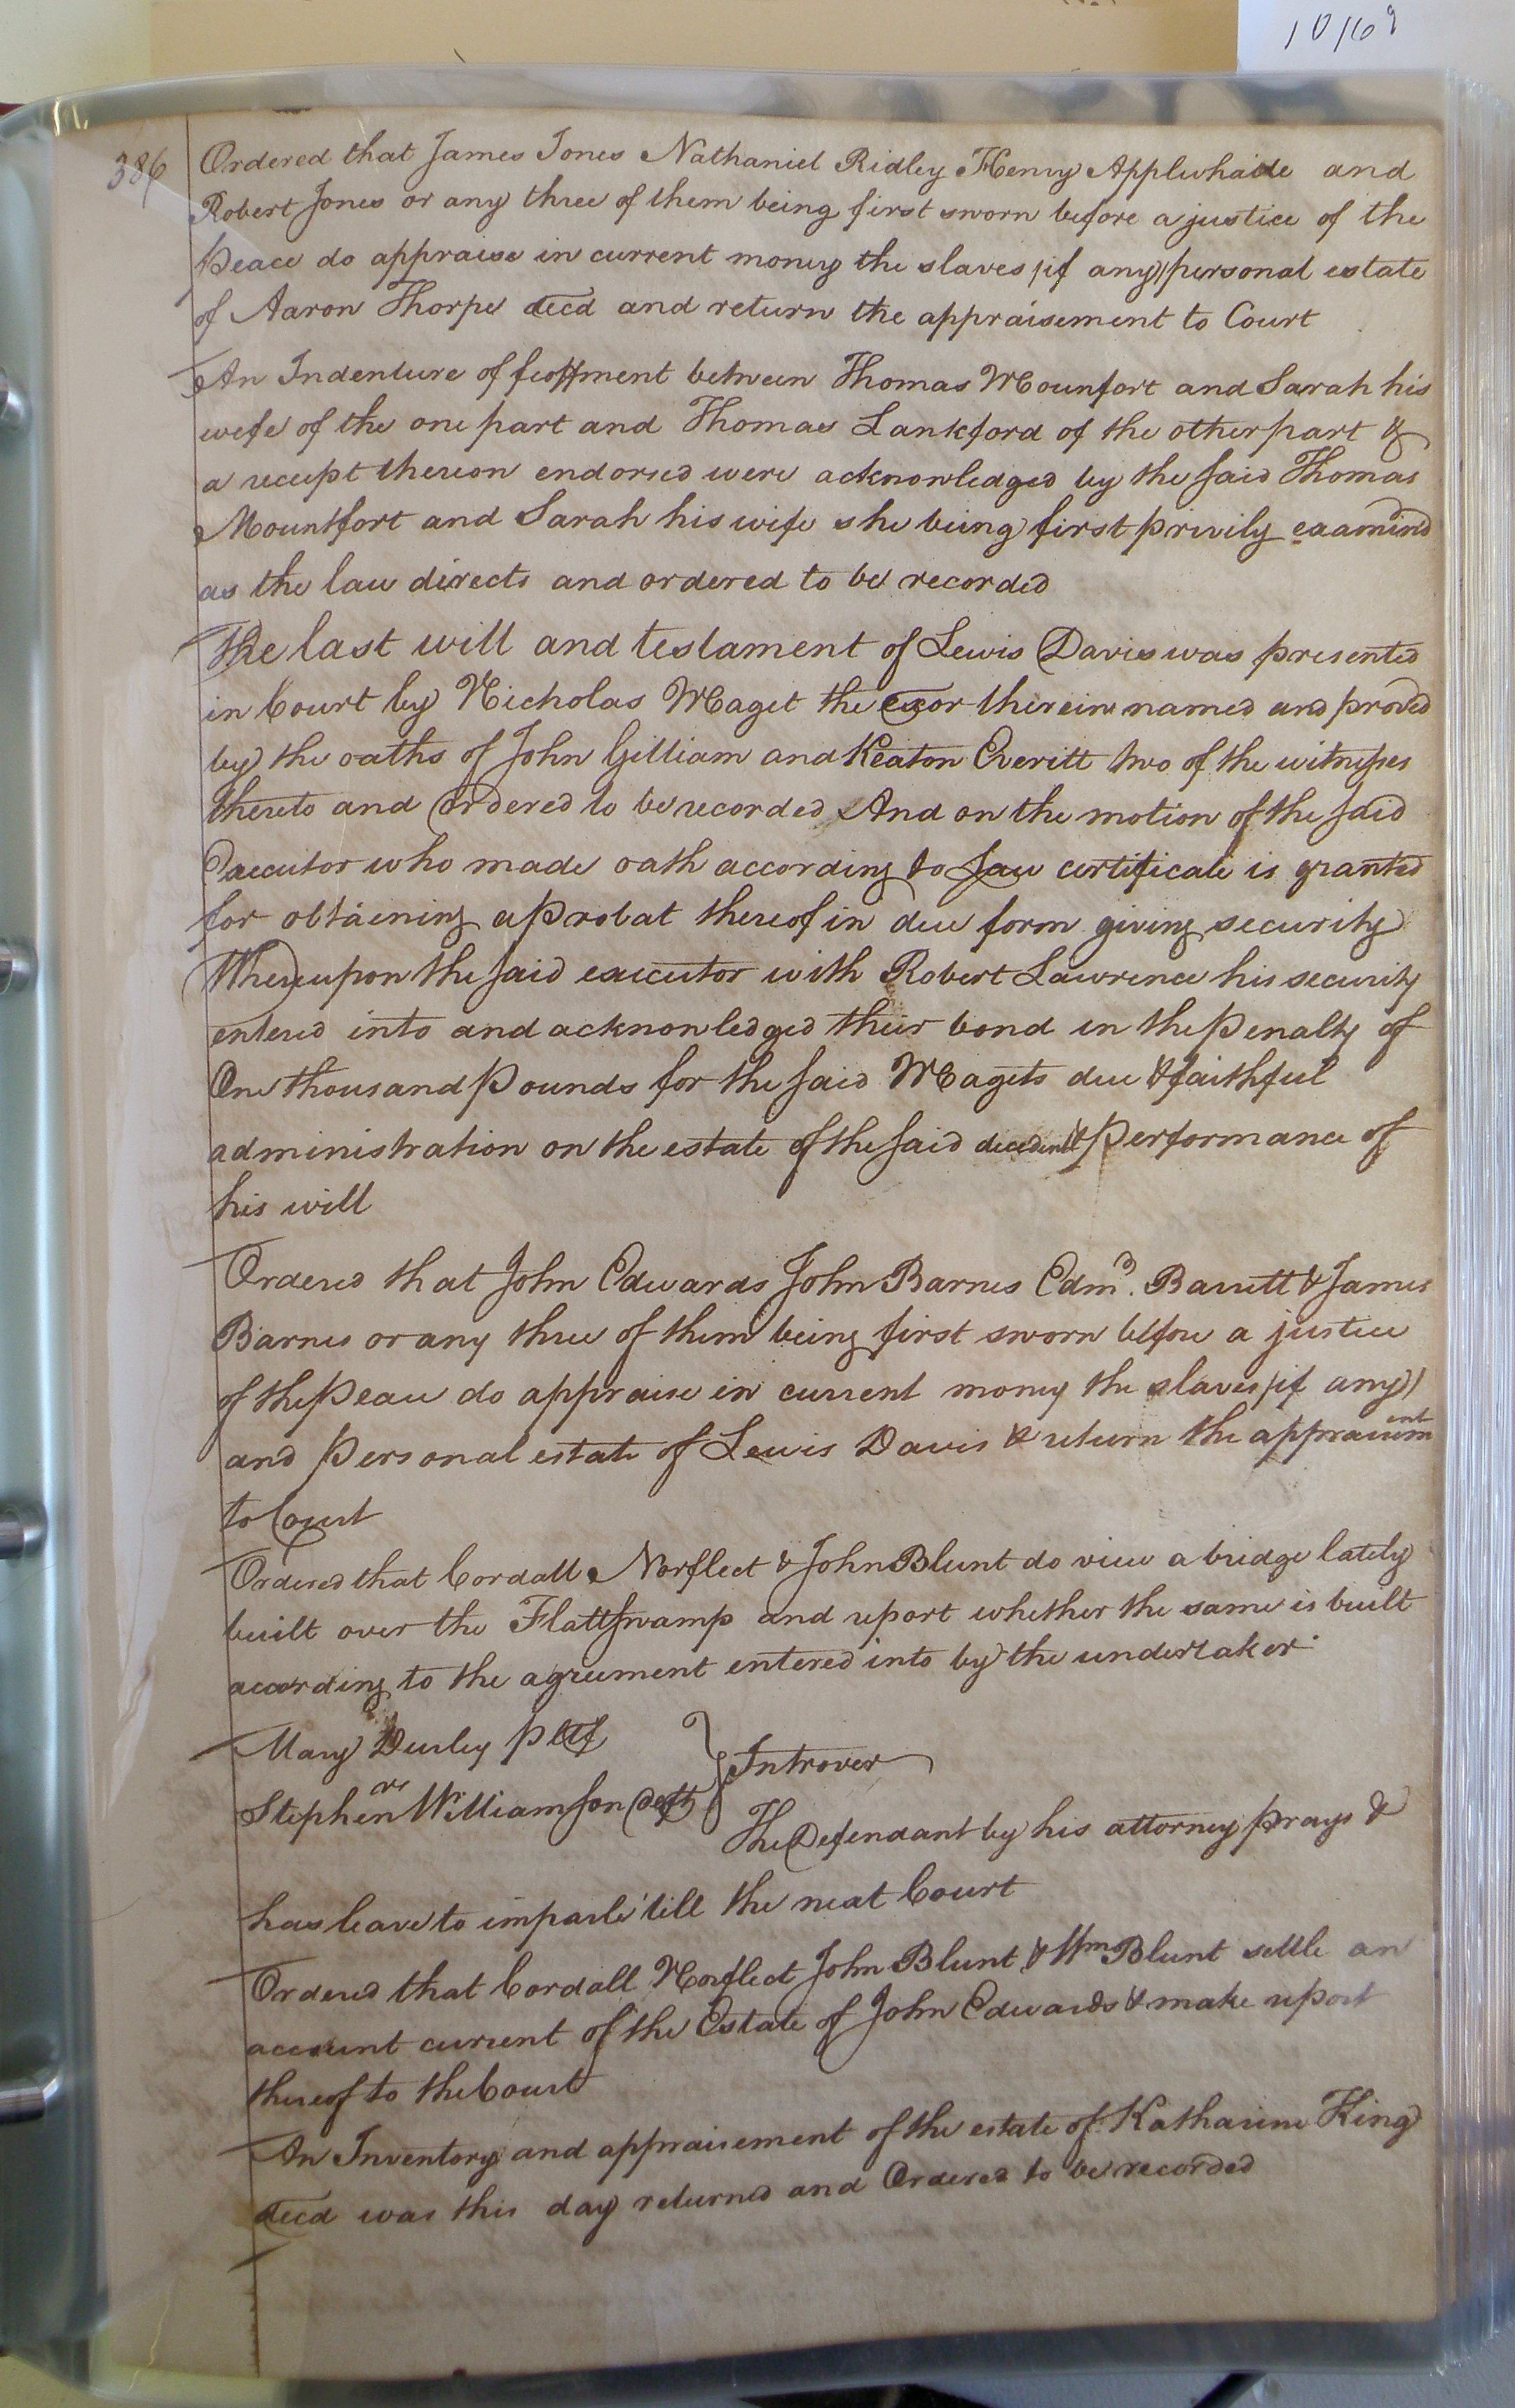 10/69
386
Ordered that James Jones Nathaniel Ridley Henry Applewhaite and
Robert Jones or any three of them being first sworn before a justice of the
Peace do appraise in current money the slaves (if any) personal estate
of Aaron Thorpe decd and return the appraisement to Court
An Indenture of feoffment between Thomas Mounfort and Sarah his
wife of the one part and Thomas Lankford of the other part &
a receipt thereon endorsed were acknowledged by the said Thomas
Mountfort and Sarah his wife she being first privily examind
as the law directs and ordered to be recorded
The last will and testament of Lewis Davis was presented
in Court by Nicholas Maget the exor therein named and proved
by the oaths of John Gilliam and Keaton Everitt two of the witnesses
thereto and Ordered to be recorded And on the motion of the said
Executor who made oath according to law certificate is granted
for obtaining a probat thereof in due form giving security
Whereupon the said executor with Robert Lawrence his security
entered into and acknowledged their bond in the Penalty of
One thousand Pounds for the said Magets due & faithful
administration on the estate of the said decedent & Performance of
his will
Ordered that John Edwards John Barnes Edmd. Barrett & James
Barnes or any three of them being first sworn before a justice
of the Peace do appraise in current money the slaves (if any)
and Personal estate of Lewis Davis & return the appraisment
to Court
Ordered that Cordall Norfleet & John Blunt do view a bridge lately
built over the Flatt swamp and report whether the same is built
according to the agreement entered into by the undertaker
Mary Durley Pltf
vs
Stephen Williamson Deft } In trover
The Defendant by his attorney prays &
has leave to imparle 'till the next Court
Ordered that Cordall Norfleet John Blunt & Wm Blunt settle an
account current of the Estate of John Edwards & make report
thereof to the Court
An Inventory and appraisement of the estate of Katharine King
decd was this day returned and Ordered to be recorded